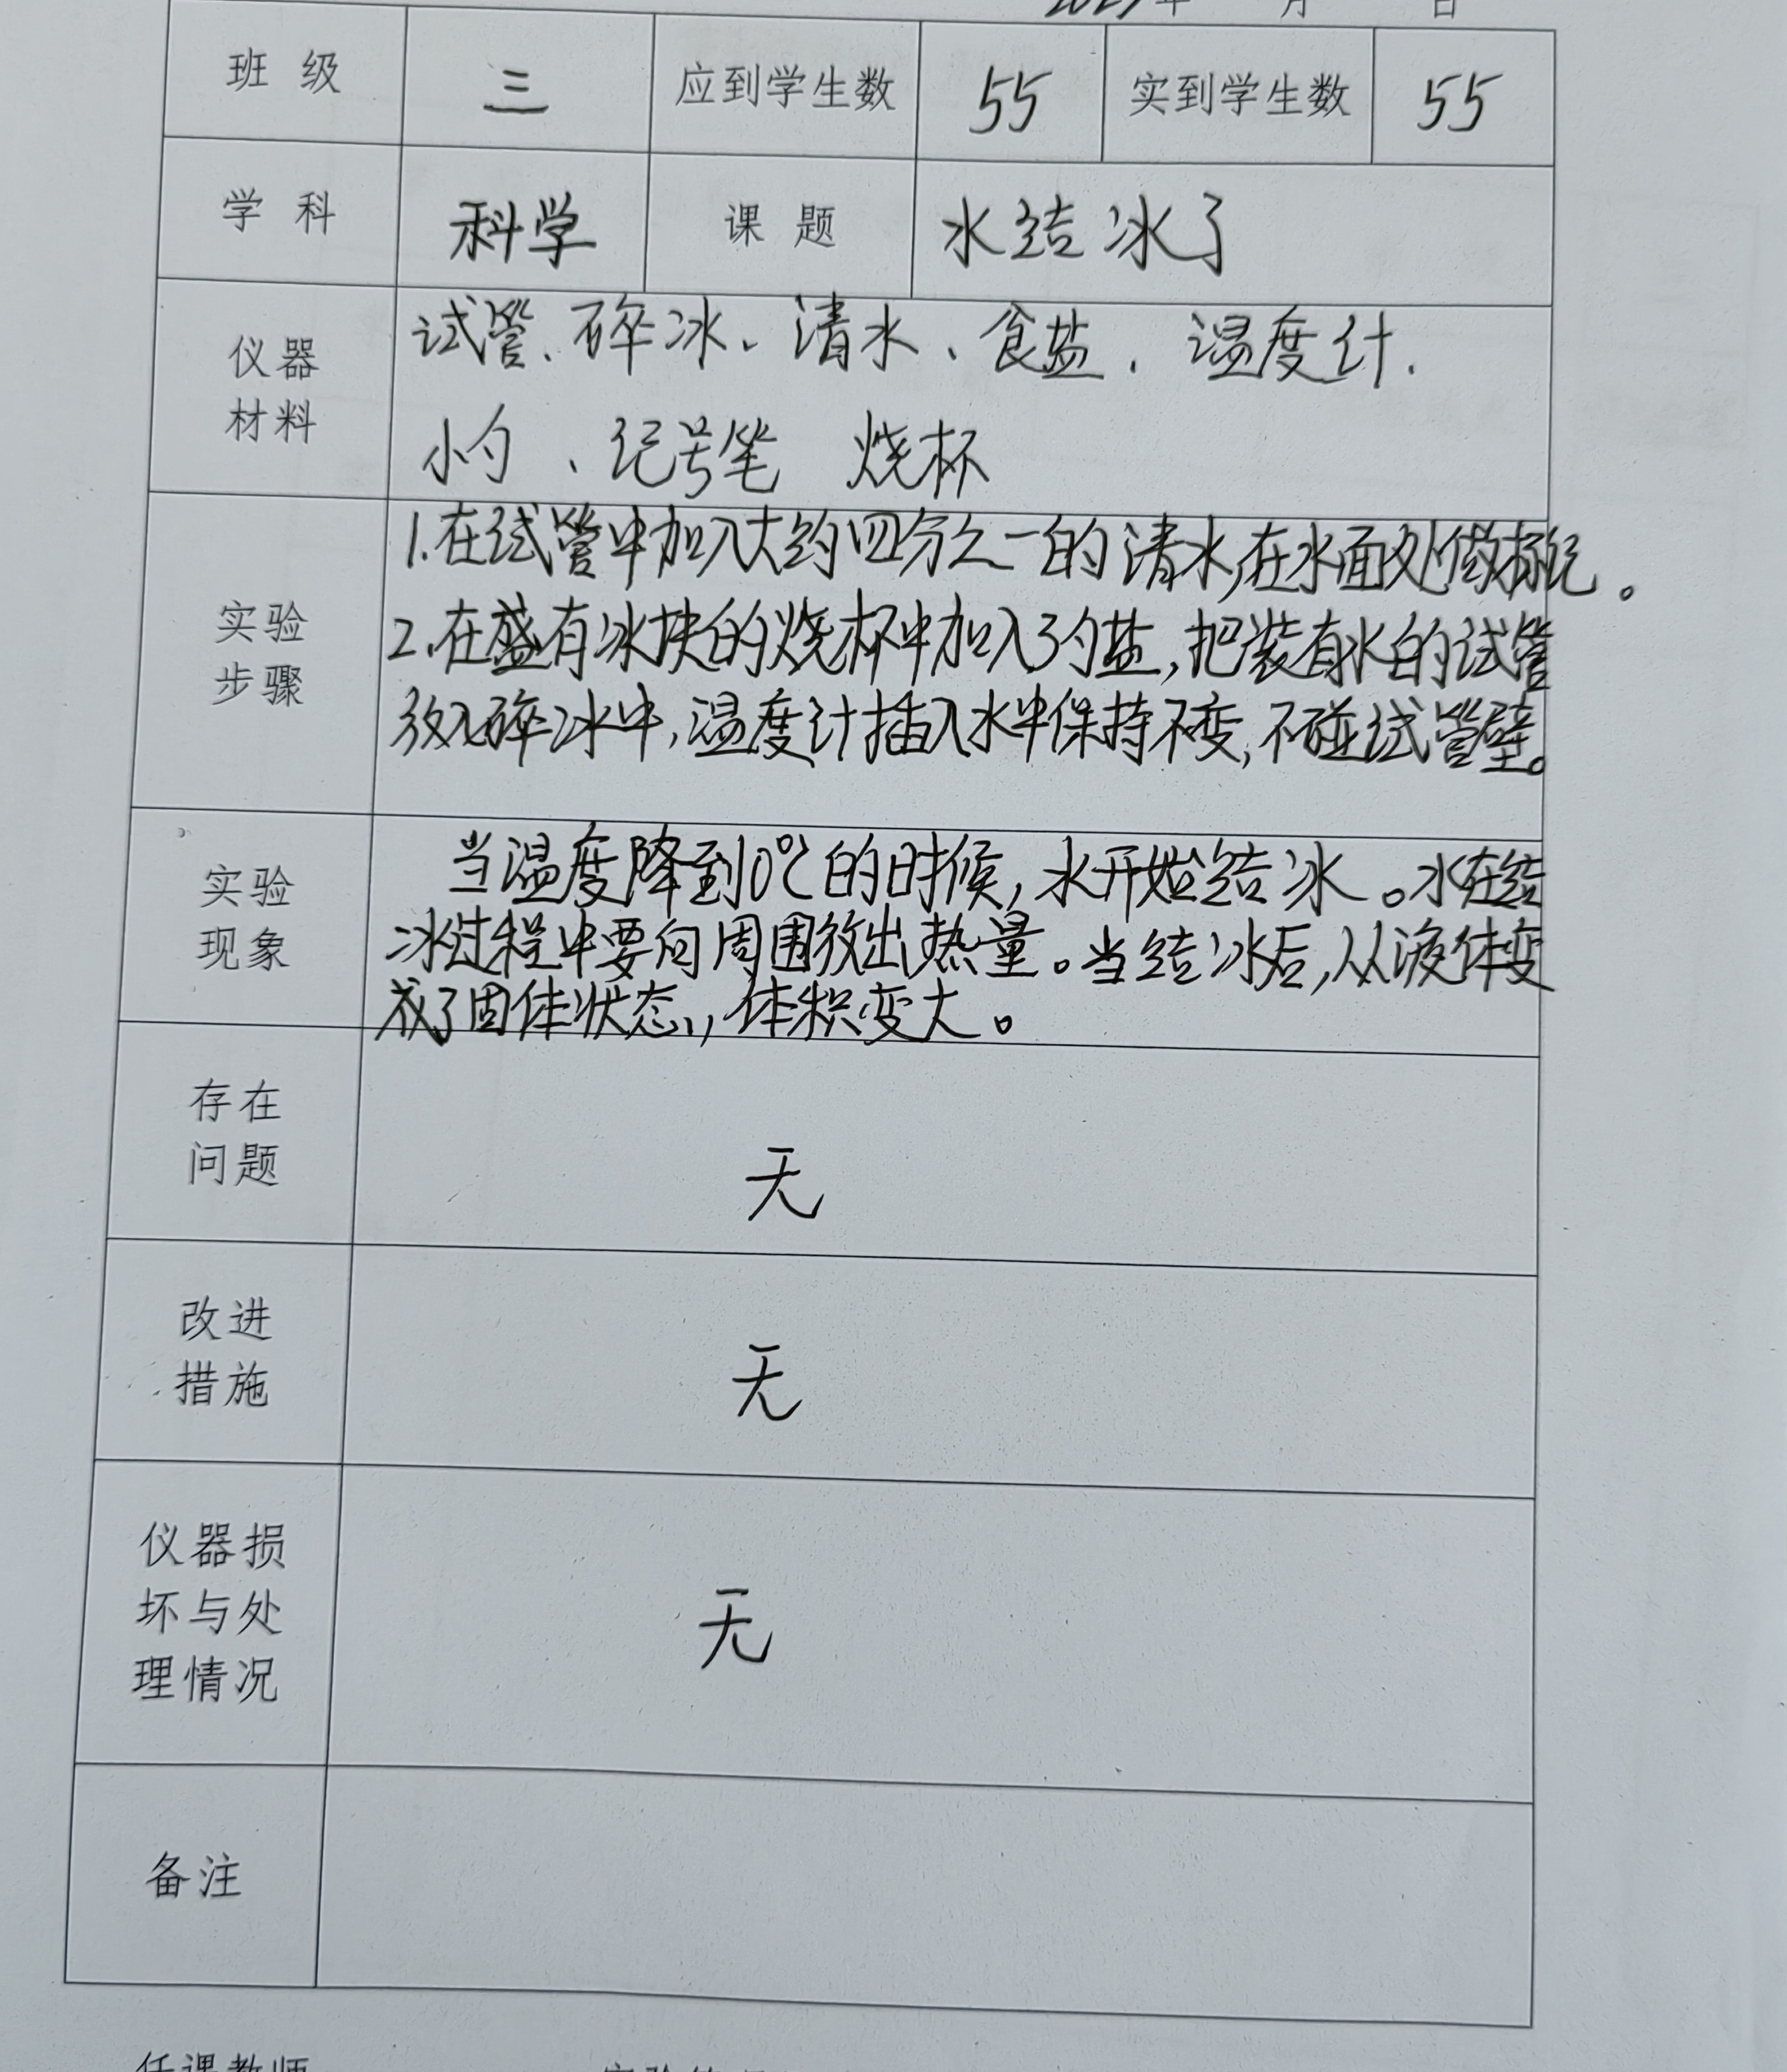 年 月 日
班 级 三 应到学生数 55 实到学生数 55
学 科 科学 课 题 水结冰了
仪器
材料
试管、碎冰、清水、食盐、温度计、
小勺、记号笔 烧杯
实验
步骤
1.在试管中加入大约四分之一的清水,在水面处做标记。
2.在盛有冰块的烧杯中加入3勺盐,把装有水的试管
放入碎冰中,温度计插入水中保持不变,不碰试管壁。
实验
现象
当温度降到0℃的时候,水开始结冰。水在结
冰过程中要向周围放出热量。当结冰后,从液体变
成了固体状态,体积变大。
存在
问题
无
改进
措施
无
仪器损
坏与处
理情况
无
备注
任课教师